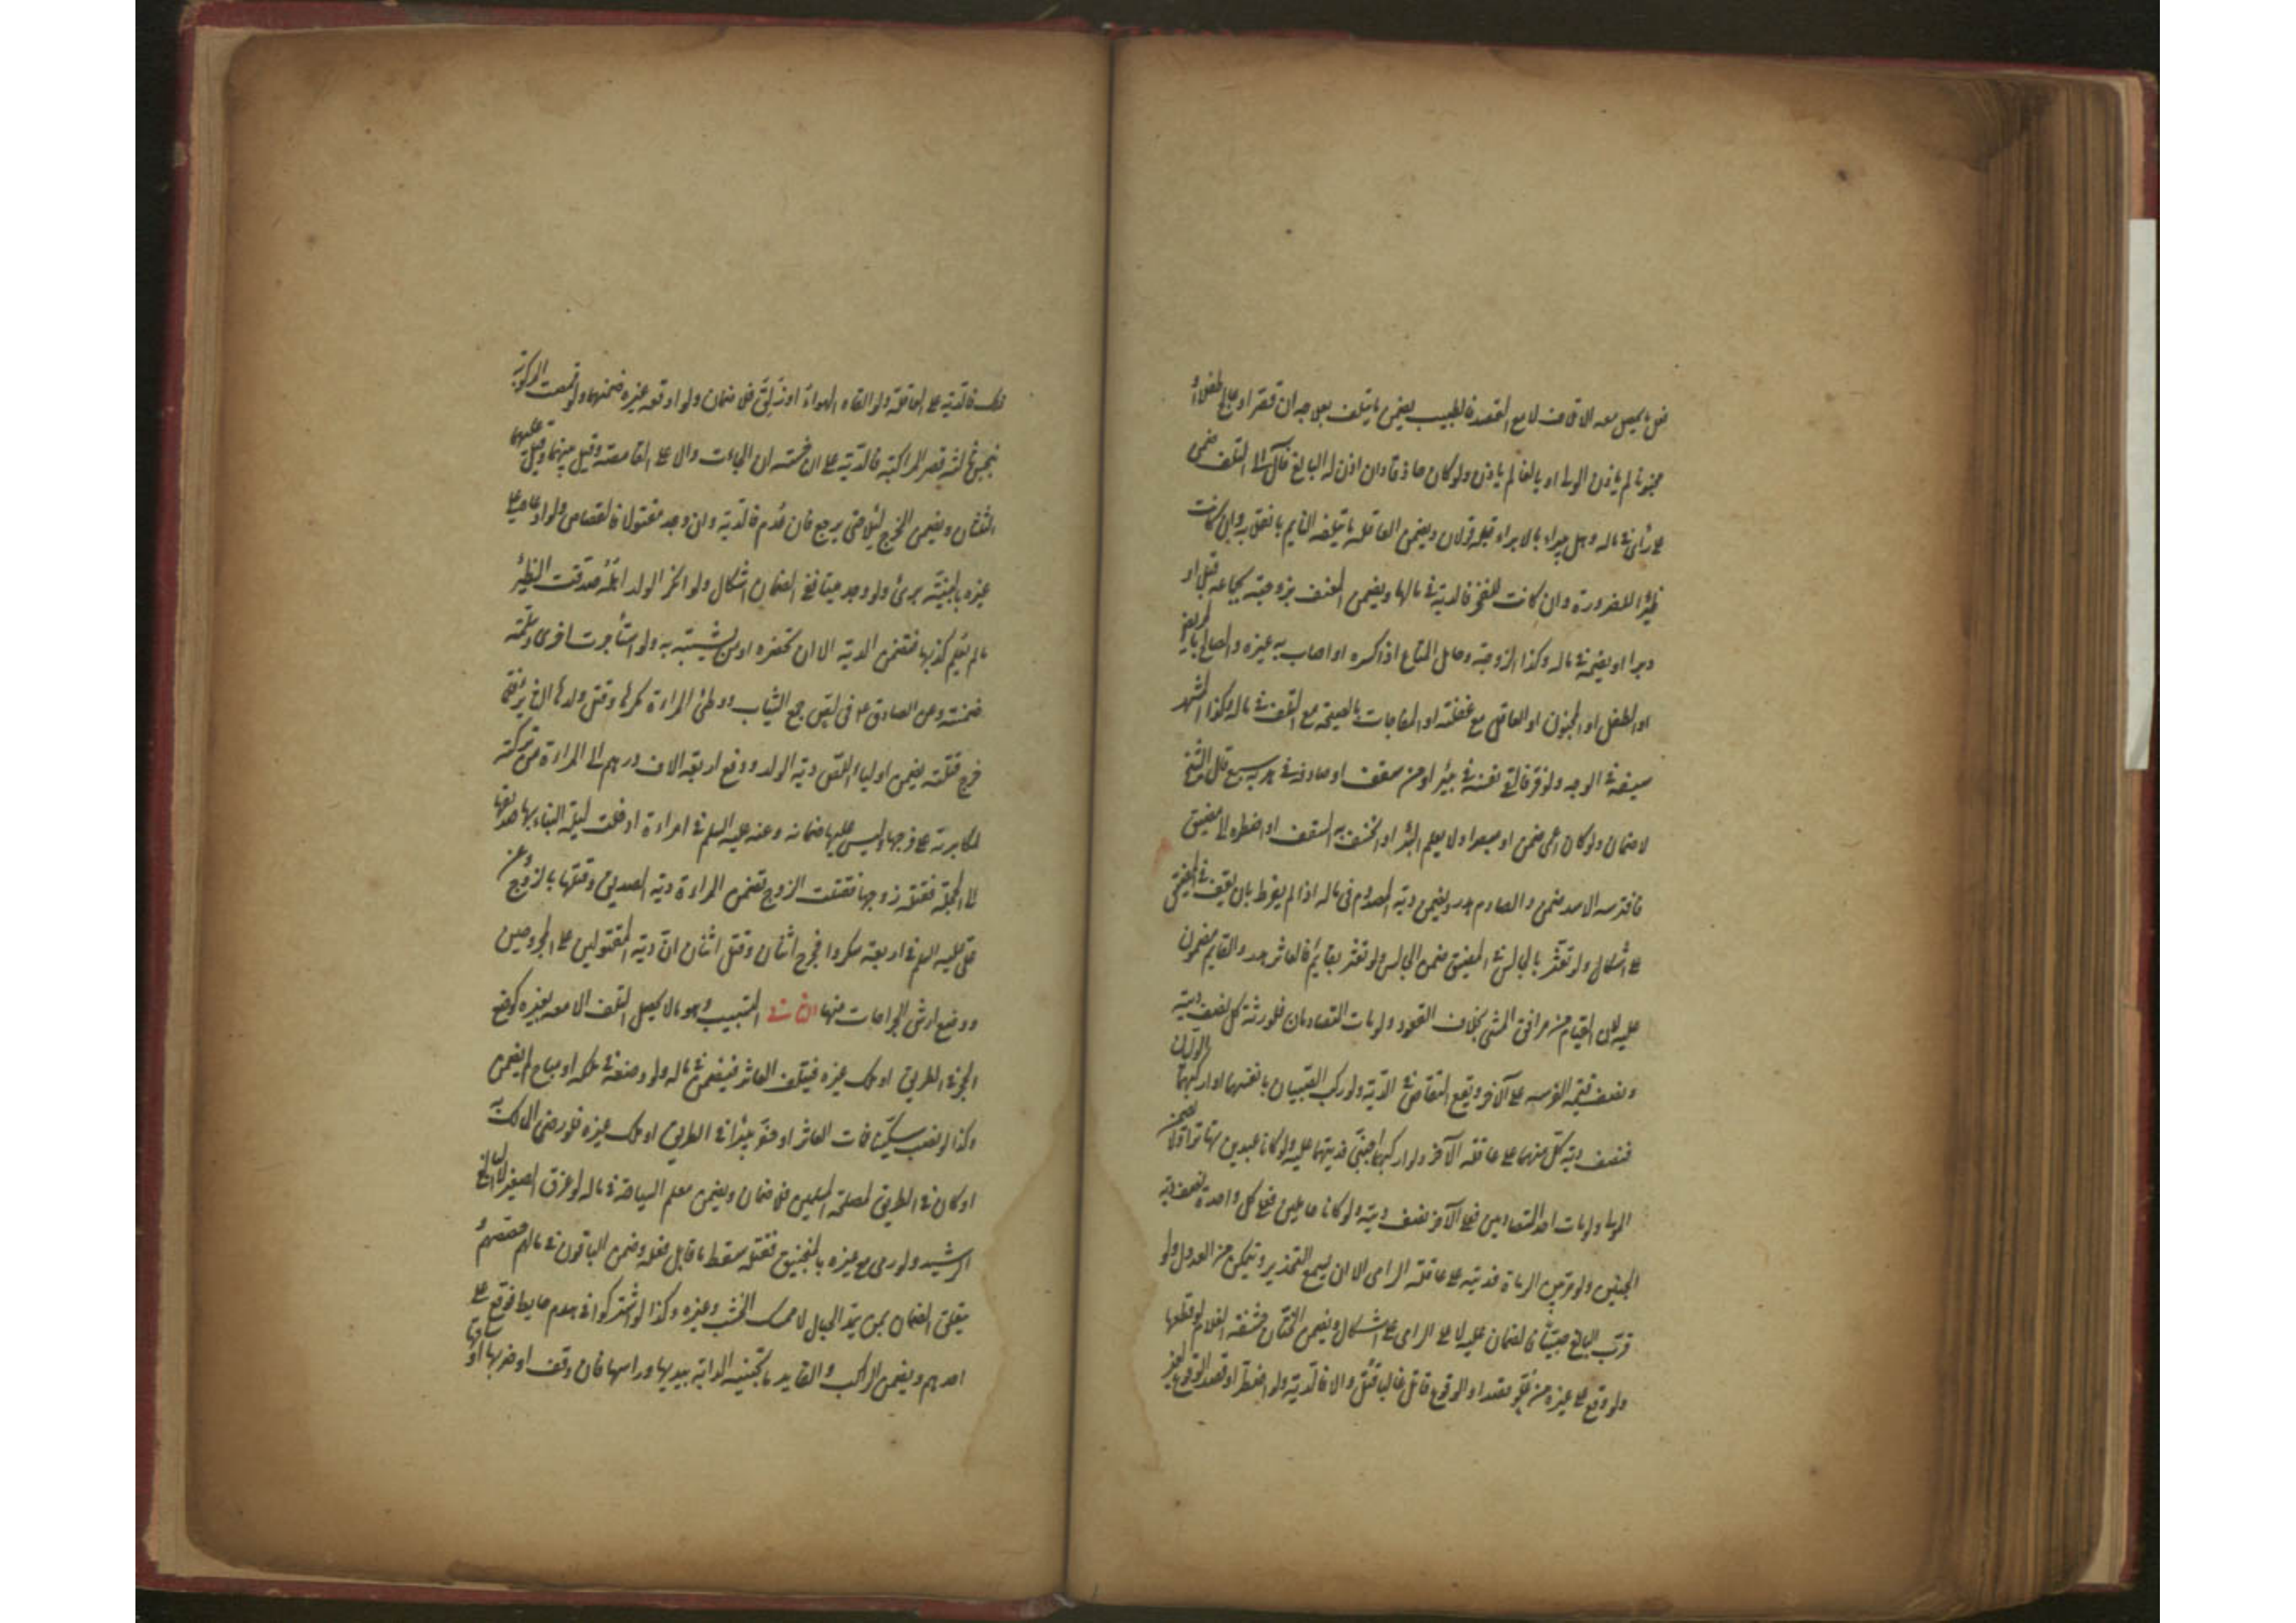 فعل ما يحصل معه الاتلاف لا مع القصد فالطبيب يضمن ما يتلف بعلاجه ان قصر او عالج طفلا او
مجنونا لم ياذن الولى او بالغا لم ياذن ولو كان حاذقا وان اذن له البالغ فآل الى التلف ضمن
على رأى فى ماله وهل يبراء بالابراء قبله قولان ويضمن العاقلة ما يتلفه النايم بانقلابه وان كانت
ظئرا للضرورة وان كانت للفخر فالدية فى مالها ويضمن المعنف بزوجته بجماعه قبلا او
دبرا او بضمه فى ماله وكذا الزوجة وحامل المتاع اذا كسره او اصاب به غيره والصايح بالمريض
او الطفل او المجنون او العاقل مع غفلته او المفاجات بالصيحة مع التلف فى ماله وكذا المشهر
سيفه فى الوجه ولو فر فالقى نفسه فى بئر او من سقف او صادفه فى هربه سبع قال الشيخ
لا ضمان ولو كان اعمى ضمن او مبصرا ولا يعلم البئر او انخسف به السقف او اضطره الى مضيق
فافترسه الاسد ضمن والصادم هدر ويضمن دية المصدوم فى ماله اذا لم يفرط بان يقف فى المضيق
على اشكال ولو تعثر بالجالس فى المضيق ضمن الجالس ولو تعثر بقايم فالعاثر هدر والقايم مضمون
عليه لان القيام من مرافق المشى بخلاف القعود ولو مات المتصادمان فلورثة كل نصف ديته
ونصف قيمة الفرس على الآخر ويقع التقاص فى الدية ولو ركب الصبيان بانفسهما او اركبهما الوليان
فنصف دية كل منهما على عاقلة الآخر ولو اركبهما اجنبى فديتهما عليه ولو كانا عبدين بهاتر لا يضمن
المولى ولو مات احد المتصادمين فعلى الآخر نصف ديته ولو كانا حاملين فعلى كل واحدة نصف دية
الجنين ولو مر بين الرماة فديته على عاقلة الرامى الا ان يسمع التحذير ويتمكن من العدول ولو
قرب البالغ صبيا فالضمان عليه لا على الرامى على اشكال ويضمن الختان حشفة الغلام لو قطعها
ولو وقع على غيره من علو بقصد او الوقوع قاتل غالبا قتل والا فالدية ولو اضطر او قصد الوقوع لغير
ذلك فالدية على العاقلة ولو القاه الهواء او زلق فلا ضمان ولو اوقعه غيره ضمنهما ولو قمصت المركوبة
بنخس ثالثة فصرع الراكبة فالدية على الناخسة ان الجاءت والا على القامصة وقيل بينهما وقيل عليهما
الثلثان ويضمن المخرج ليلا حتى يرجع فان عدم فالدية وان وجد مقتولا فالقصاص ولو ادعاه على
غيره بالبينة برئ ولو وجد ميتا ففى الضمان اشكال ولو انكر الولد اهله صدقت الظئر
ما لم يعلم كذبها فتضمن الدية الا ان تحضره او من يشتبه به ولو استأجرت اخرى وسلمته
ضمنته وعن الصادق ع فى لص جمع الثياب ووطئ المراءة كرها وقتل ولدها الخ
خرج فقتلته يضمن اولياء اللص دية الولد ودفع اربعة الاف درهم الى المراءة من تركته
لمكابرته على فرجها وليس عليها ضمانه وعنه عليه السلم فى امراءة ادخلت ليلة البناء بها صديقها
الى الحجلة فقتله زوجها فقتلت الزوج تضمن المراءة دية الصديق وقتلها بالزوج وعن
على عليه السلم فى اربعة سكروا فجرح اثنان وقتل اثنان ان دية المقتولين على المجروحين
ووضع ارش الجراحات منها الثانى التسبيب وهو ما لا يحصل التلف الا معه بغيره كوضع
الحجر فى الطريق او ملك غيره فيتلف العاثر فيضمن فى ماله ولو وضعه فى ملكه او مباح لم يضمن
وكذا لو نصب سكينا فمات العاثر او حفر بئرا فى الطريق او ملك غيره فلو رضى المالك به
او كان فى الطريق لمصلحة المسلمين فلا ضمان ويضمن معلم السباحة فى ماله لو غرق الصغير لا البالغ
الرشيد ولو رمى مع غيره بالمنجنيق فقتله سقط ما قابل فعله وضمن الباقون فى مالهم حصصهم و
يتعلق الضمان بمن يمد الحبال لا ممسك الخشب وغيره وكذا لو اشتركوا فى هدم حايط فوقع على
احدهم ويضمن الراكب والقايد ما تجنيه الدابة بيديها وراسها فان وقف او ضربها او ساقها